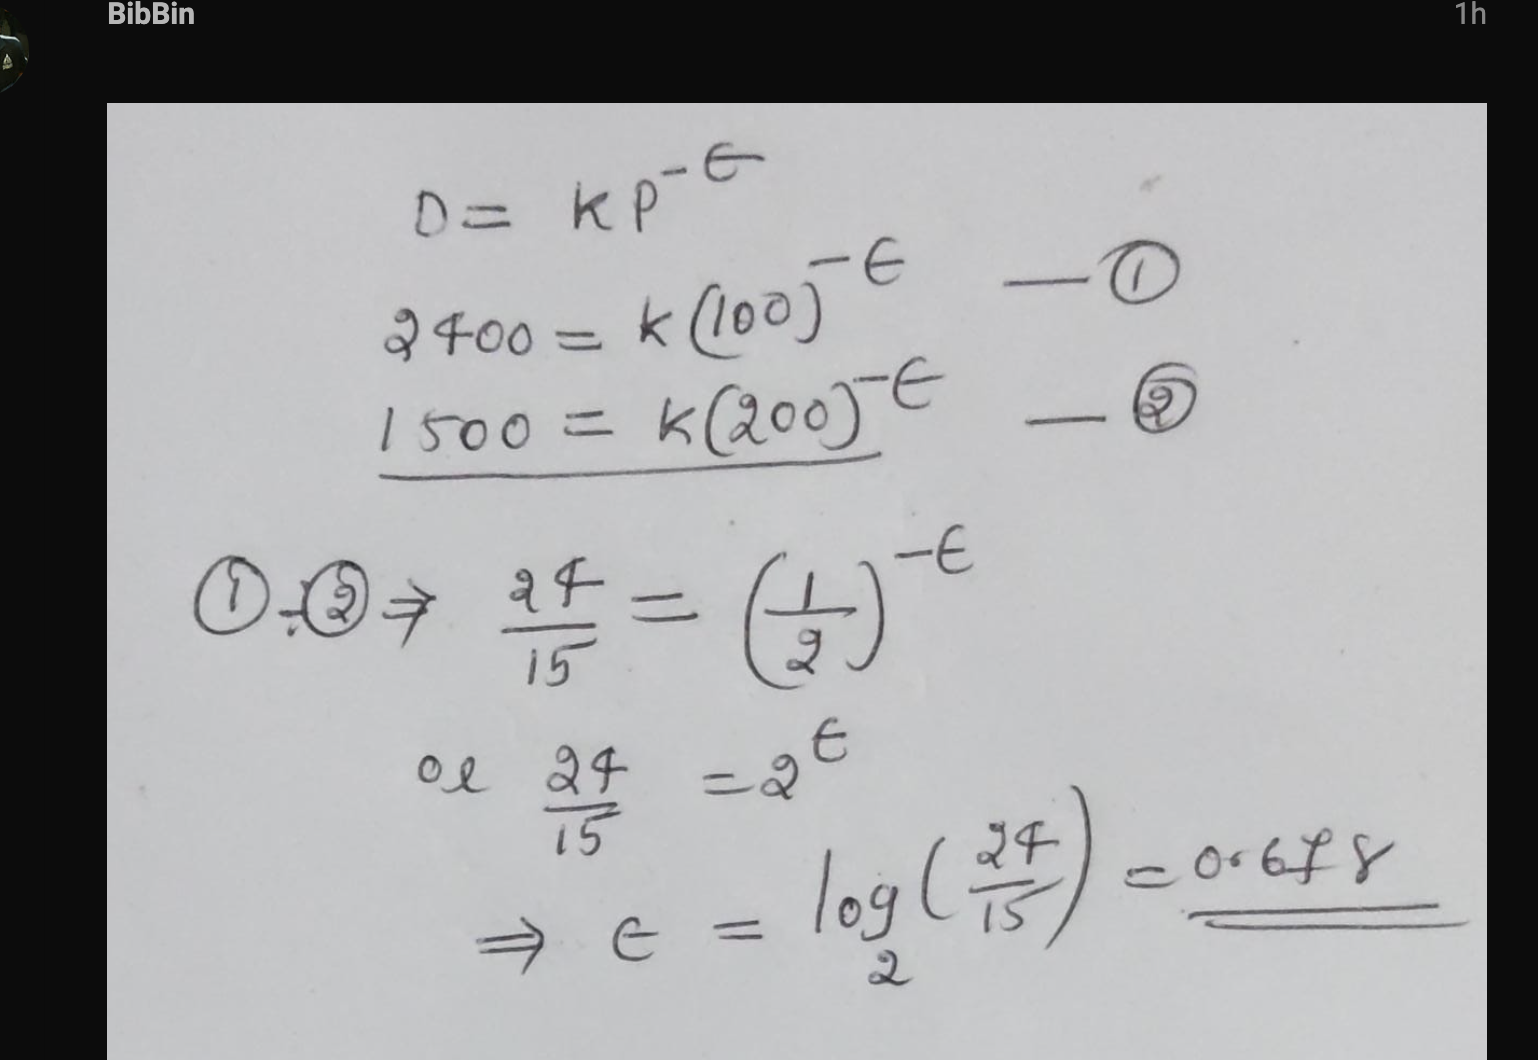 BibBin 1h
D = kp^-ϵ
2400 = k(100)^-ϵ — ①
1500 = k(200)^-ϵ — ②
① ÷ ② ⇒ 24/15 = (1/2)^-ϵ
or 24/15 = 2^ϵ
⇒ ϵ = log₂(24/15) = 0.678